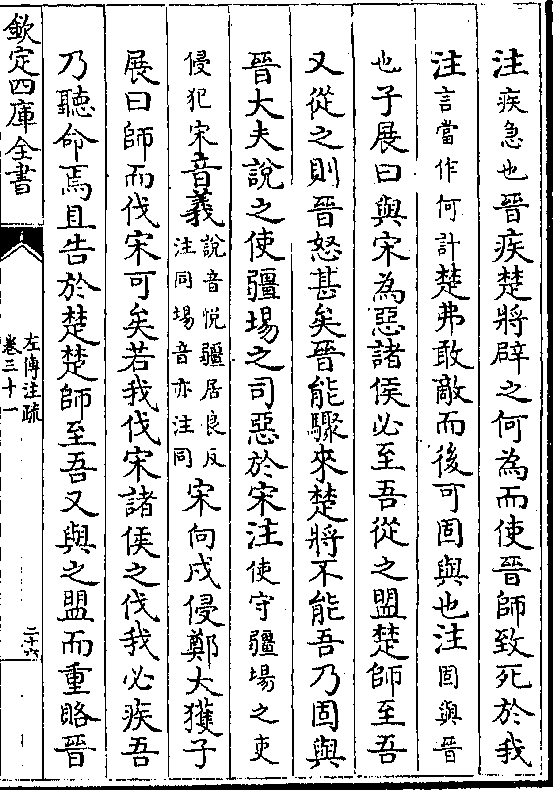 注疾急也晉疾楚將辟之何為而使晉師致死於我
注言當作何計楚弗敢敵而後可固與也注固與晉
也子展曰與宋為惡諸侯必至吾從之盟楚師至吾
又從之則晉怒甚矣晉能驟來楚將不能吾乃固與
晉大夫說之使疆埸之司惡於宋注使守疆埸之吏
侵犯宋音義說音悅疆居良反
注同埸音亦注同宋向戌侵鄭大獲子
展曰師而伐宋可矣若我伐宋諸侯之伐我必疾吾
乃聽命焉且告於楚楚師至吾又與之盟而重賂晉
欽定四庫全書
左傳注疏
卷三十一
二十六